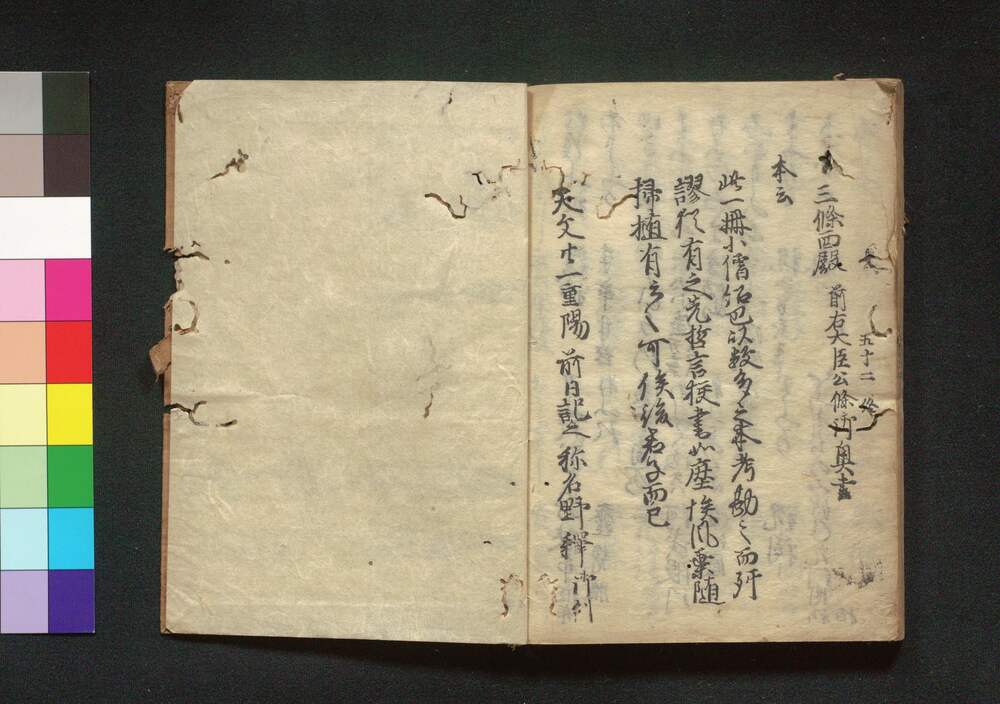 五十二
三條西殿 前右大臣公條御奥書
本云
此一冊小僧紹巴以数多之本考勘之而猶
謬猶有之先哲言校書如塵埃風葉随
掃随有云々可俟後君子而已
天文廿一重陽前日記之 称名野釋 御判